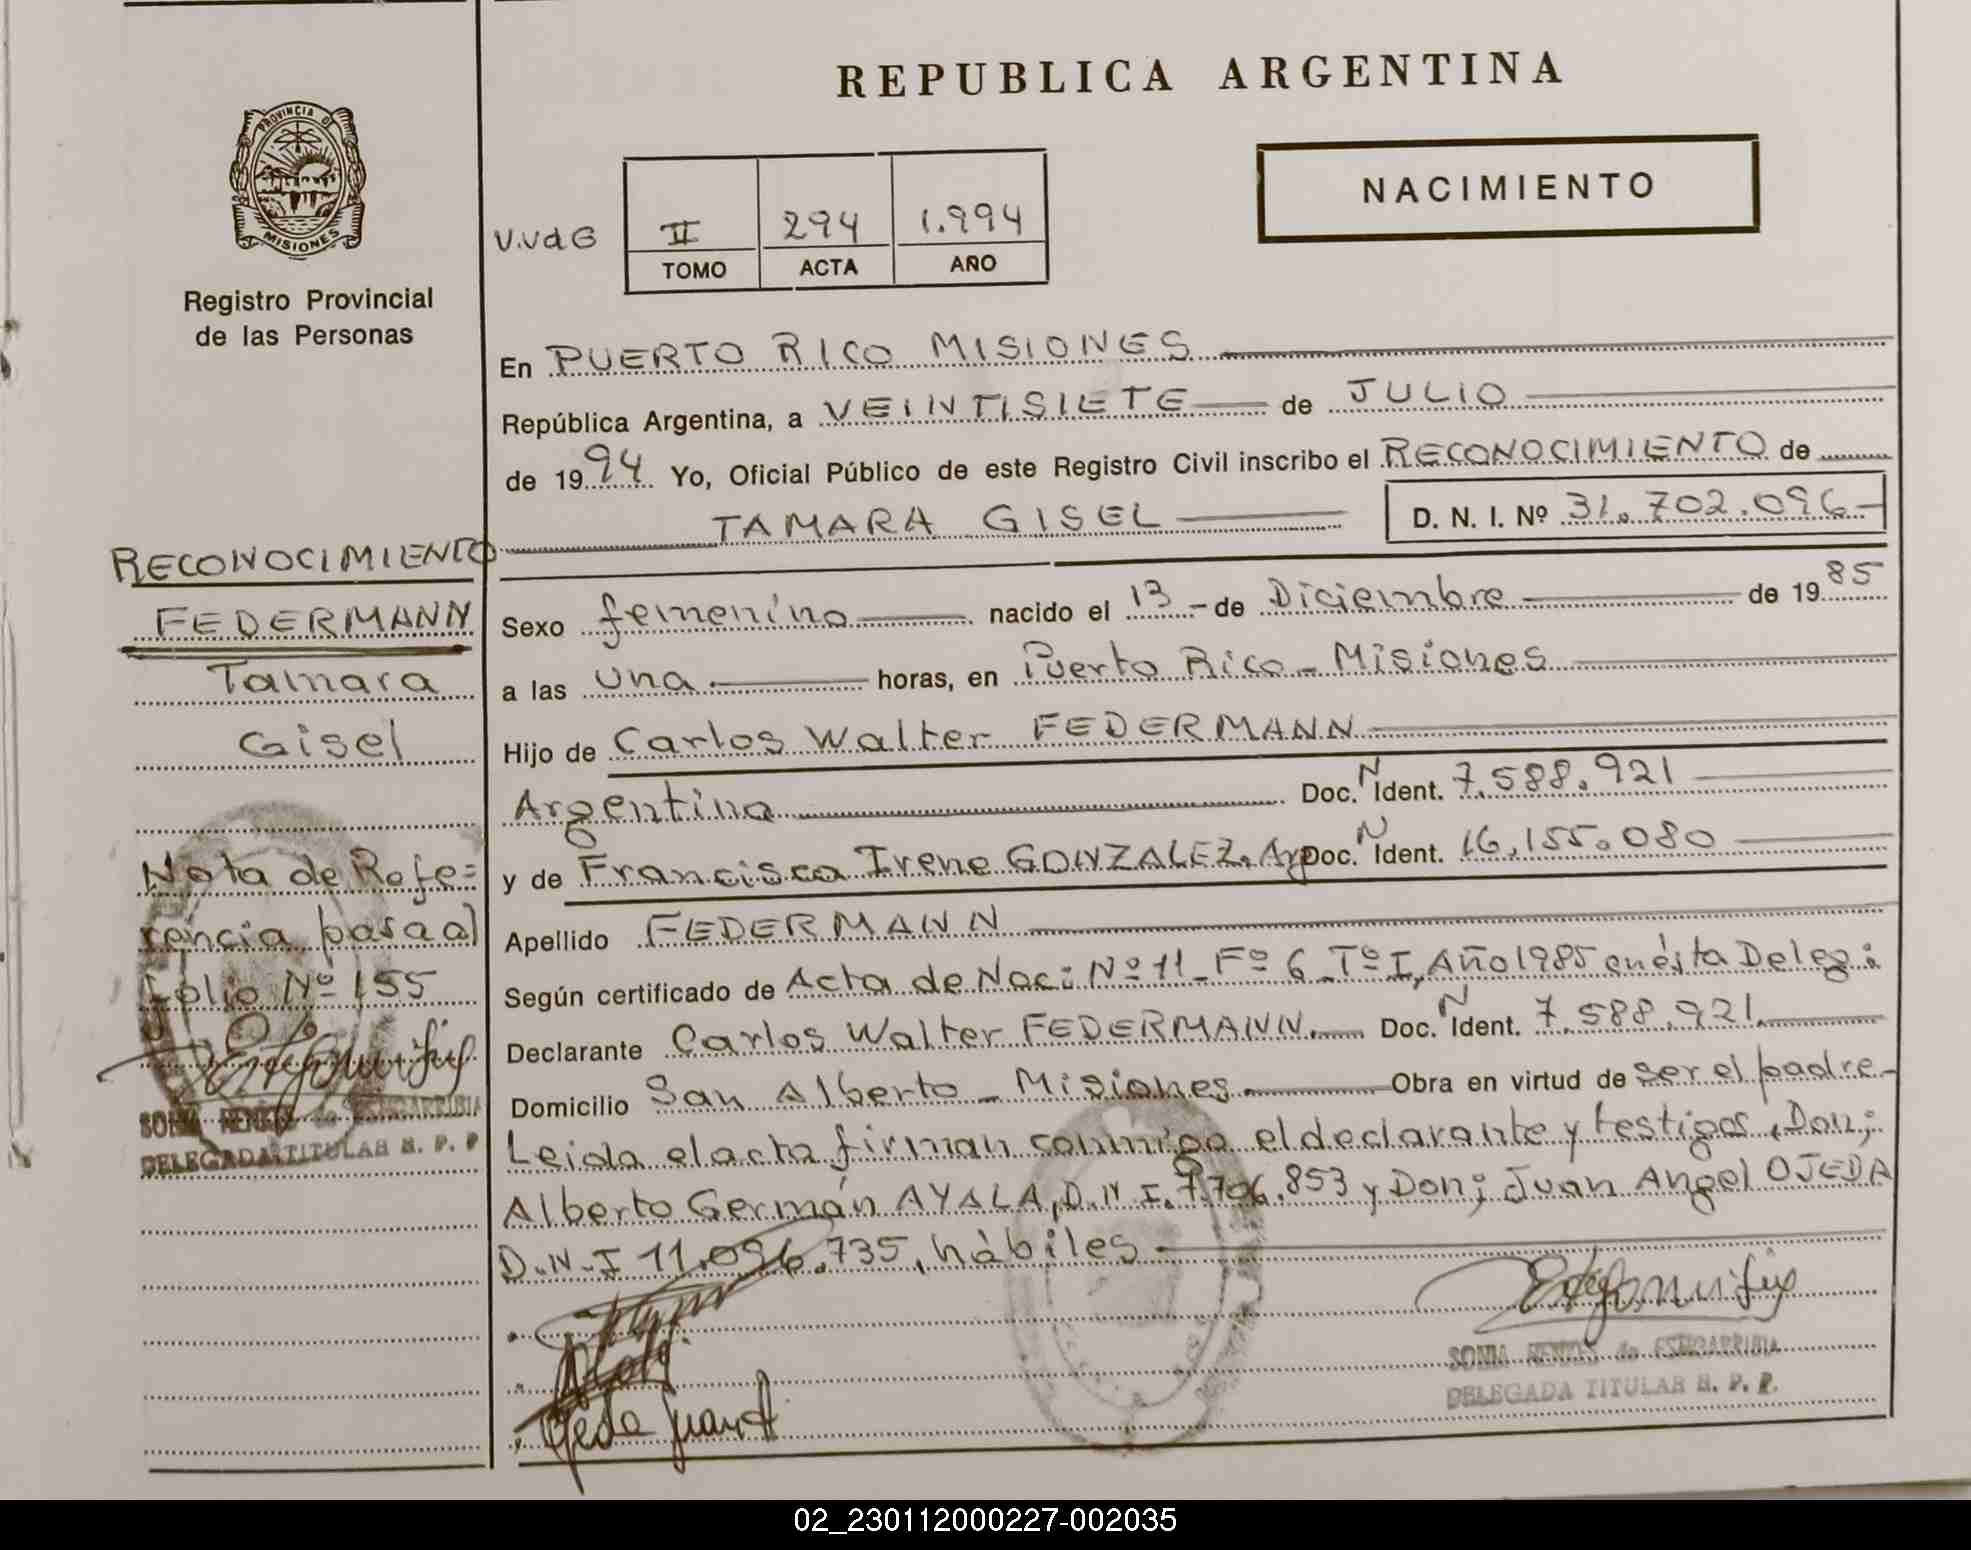 REPUBLICA ARGENTINA
PROVINCIA DE
MISIONES
Registro Provincial
de las Personas
NACIMIENTO
V.VdG
II 294 1.994
TOMO ACTA AÑO
En PUERTO RICO MISIONES
República Argentina, a VEINTISIETE de JULIO
de 1994 Yo, Oficial Público de este Registro Civil inscribo el RECONOCIMIENTO de
TAMARA GISEL D. N. I. Nº 31.702.096-
Sexo femenino nacido el 13 - de Diciembre de 1985
a las una horas, en Puerto Rico - Misiones
Hijo de Carlos Walter FEDERMANN
Argentina Doc. N Ident. 7.588.921
y de Francisca Irene GONZALEZ. Arg Doc. N Ident. 16.155.080
Apellido FEDERMANN
Según certificado de Acta de Nac: Nº 11 - Fº 6 - Tº I, Año 1985 en ésta Deleg:
Declarante Carlos Walter FEDERMANN. Doc. N Ident. 7.588.921.
Domicilio San Alberto - Misiones. Obra en virtud de ser el padre-
Leida el acta firman conmigo el declarante y testigos, Don;
Alberto Germán AYALA, D.N.I. 7.706.853 y Don; Juan Angel OJEDA
D.N.I 11.096.735, hábiles.
Ojeda Juan A
SONIA de
DELEGADA TITULAR R. P. P.
RECONOCIMIENTO
FEDERMANN
Tamara
Gisel
Nota de Refe=
rencia pasa al
folio Nº 155
SONIA de
DELEGADA TITULAR R. P. P
02_230112000227-002035